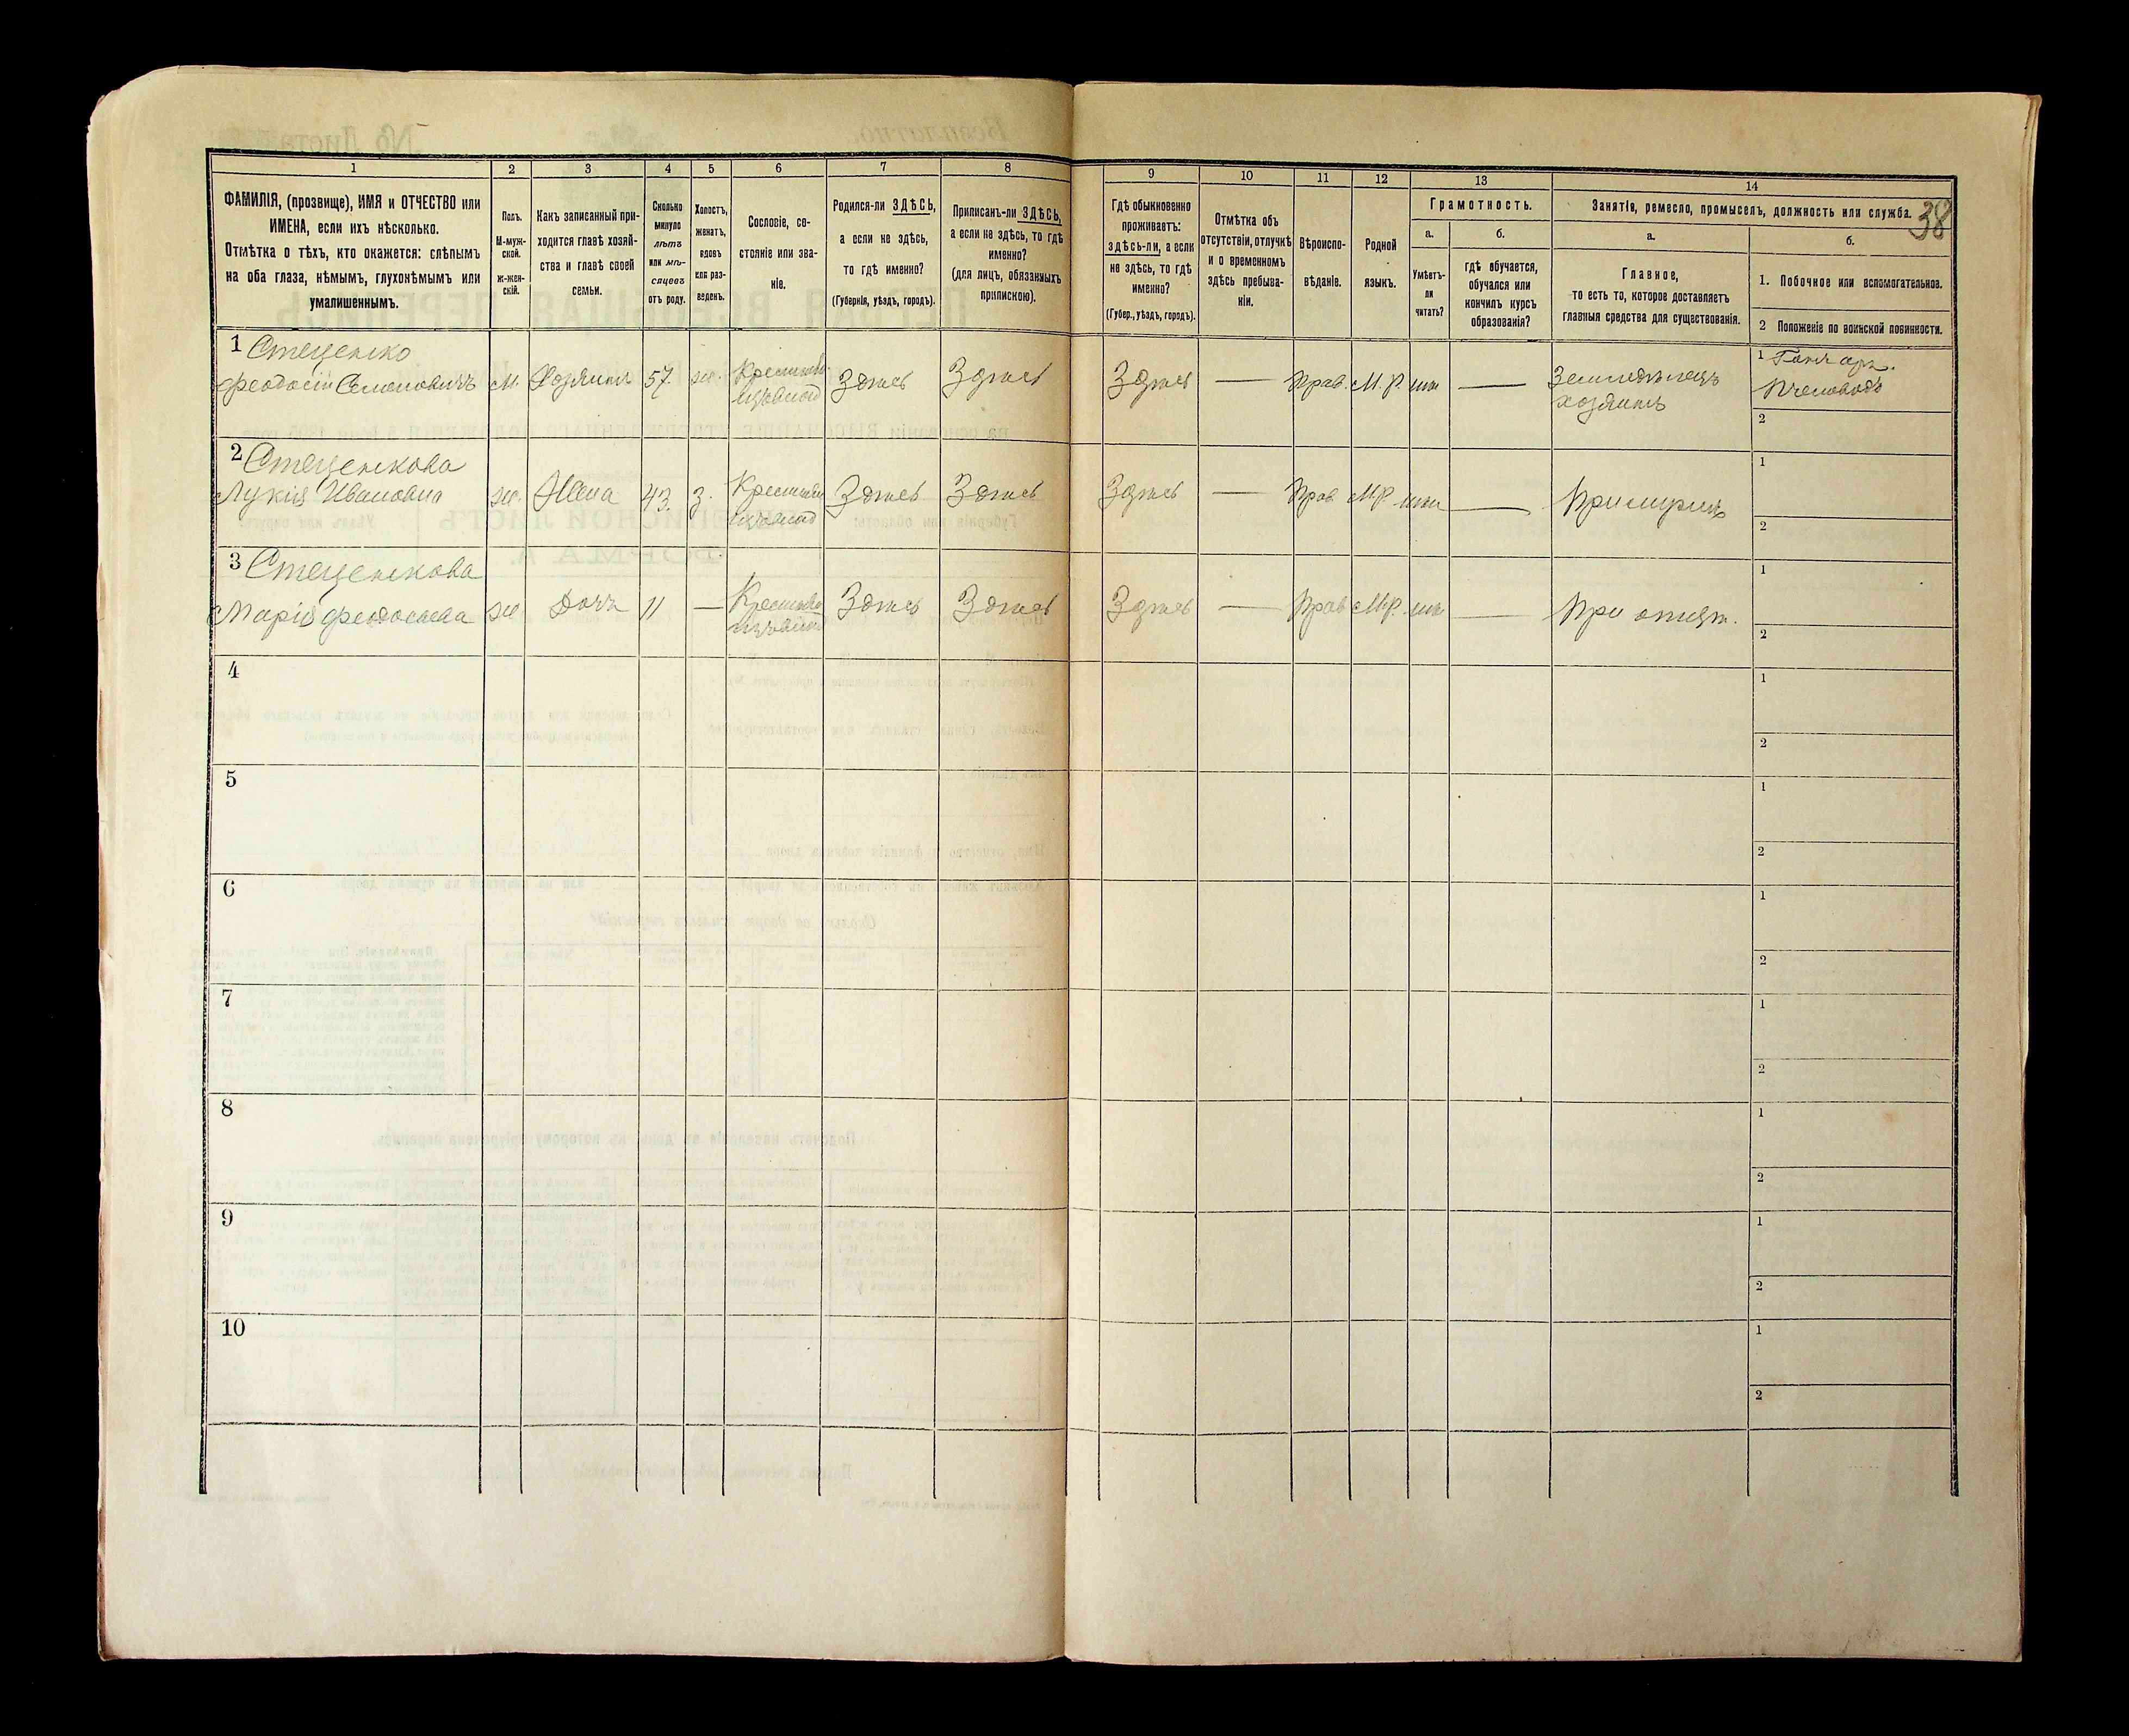 38
1
2
3
4
5
6
7
8
9
10
11
12
13
14
ФАМИЛІЯ, (прозвище), ИМЯ и ОТЧЕСТВО или
ИМЕНА, если ихъ нѣсколько.
Отмѣтка о тѣхъ, кто окажется: слѣпымъ
на оба глаза, нѣмымъ, глухонѣмымъ или
умалишеннымъ.
Полъ.
М-муж-
ской.
ж-жен-
скій.
Какъ записанный при-
ходится главѣ хозяй-
ства и главѣ своей
семьи.
Сколько
минуло
лѣтъ
или мѣ-
сяцевъ
отъ роду.
Холостъ,
женатъ,
вдовъ
или раз-
веденъ.
Сословіе, со-
стояніе или зва-
ніе.
Родился-ли ЗДѢСЬ,
а если не здѣсь,
то гдѣ именно?
(Губернія, уѣздъ, городъ).
Приписанъ-ли ЗДѢСЬ,
а если не здѣсь, то гдѣ
именно?
(для лицъ, обязанныхъ
припискою).
Гдѣ обыкновенно
проживаетъ:
здѣсь-ли, а если
не здѣсь, то гдѣ
именно?
(Губер., уѣздъ, городъ).
Отмѣтка объ
отсутствіи, отлучкѣ
и о временномъ
здѣсь пребыва-
ніи.
Вѣроиспо-
вѣданіе.
Родной
языкъ.
Грамотность.
а.
Умѣетъ-
ли
читать?
б.
гдѣ обучается,
обучался или
кончилъ курсъ
образованія?
Занятія, ремесло, промыселъ, должность или служба.
а.
Главное,
то есть то, которое доставляетъ
главныя средства для существованія.
б.
1. Побочное или вспомогательное.
2 Положеніе по воинской повинности.
1 Стеценко
Феодосій Семеновичъ М. Хозяинъ 57 ж. Здѣсь Здѣсь Здѣсь — Прав. М.Р. — Земледѣлецъ
хозяинъ
1 Гончаръ.
Пчеловодъ
2
2 Стеценкова
Лукія Ивановна ж. Жена 43 з. Здѣсь Здѣсь Здѣсь — Прав М.Р. — При мужѣ
1
2
3 Стеценкова
Марія Феодосіева ж Дочь 11 — Здѣсь Здѣсь Здѣсь — Прав М.Р. — При отцѣ.
1
2
4
1
2
5
1
2
6
1
2
7
1
2
8
1
2
9
1
2
10
1
2